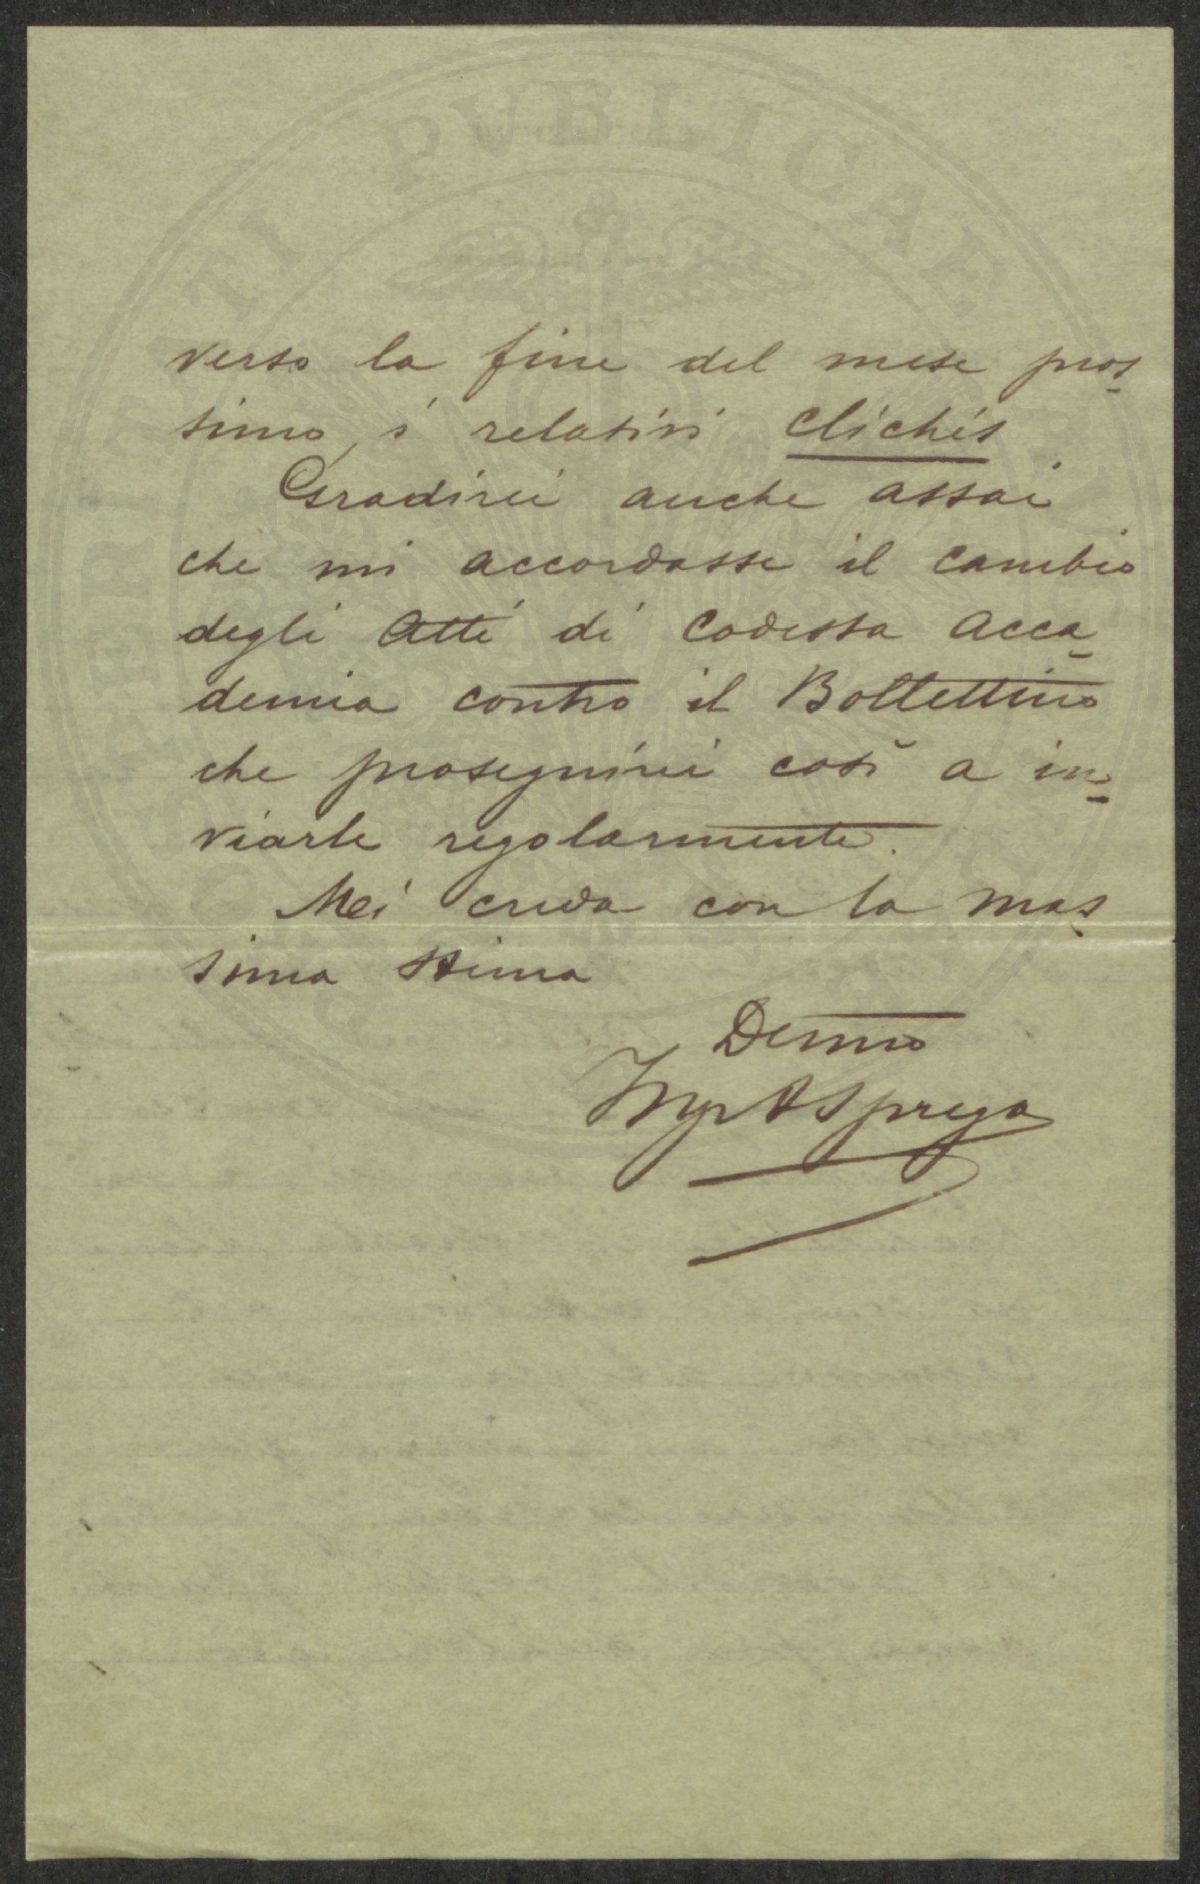 verso la fine del mese pros
simo, i relativi clichés
Gradirei anche assai
che mi accordasse il cambio
degli Atti di codesta Acca
demia contro il Bollettino
che proseguirei così a in
viarle regolarmente.
Mi creda con la mas
sima stima
Demo
Ing